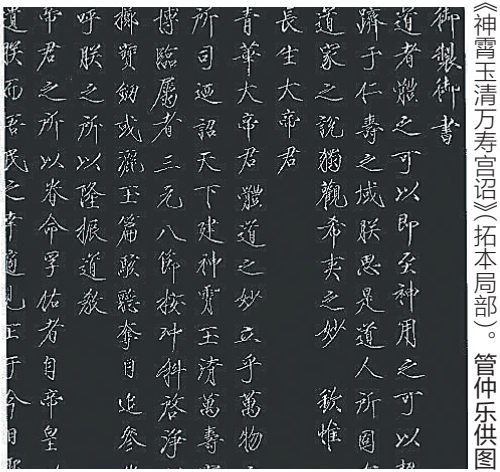 《神霄玉清万寿宫诏》(拓本局部)。 管仲乐供图
御製御書
道者體之可以即至神用之可以
躋于仁壽之域朕思是道人所固
道家之說獨觀希夷之妙 欽惟
長生大帝君
青華大帝君體道之妙立乎萬物
所司迺詔天下建神霄玉清萬壽
博臨屬者三元八節按沖科啓淨
擲寶劒或灑玉篇駭聽奪目追參
呼朕之所以隆振道教
帝君之所以眷命孚佑者自帝皇
遺朕而吾民之幸適見正于今日